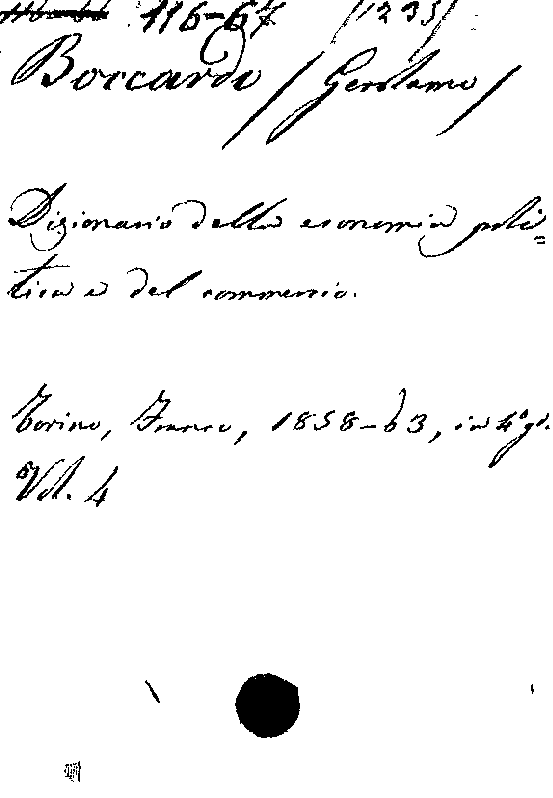 116-67 (1235)
Boccardo (Gerolamo)
Dizionario della economia poli=
tica e del commercio.
Torino, Franco, 1858-63, in 4° gr.
Vol. 4